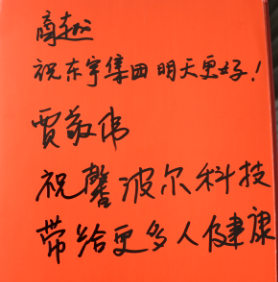 商越
祝东宇集团明天更好！
贾敬伟
祝馨波尔科技
带给更多人健康